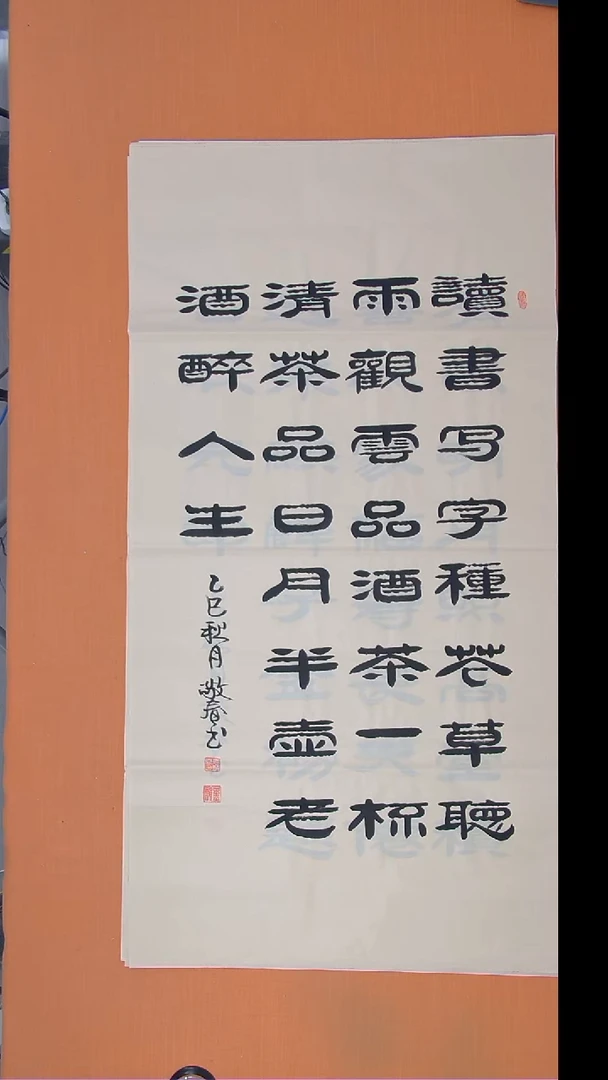 讀書写字種花草聽
雨觀雲品酒茶一杯
清茶品日月半壺老
酒醉人生
乙巳秋月敬春书